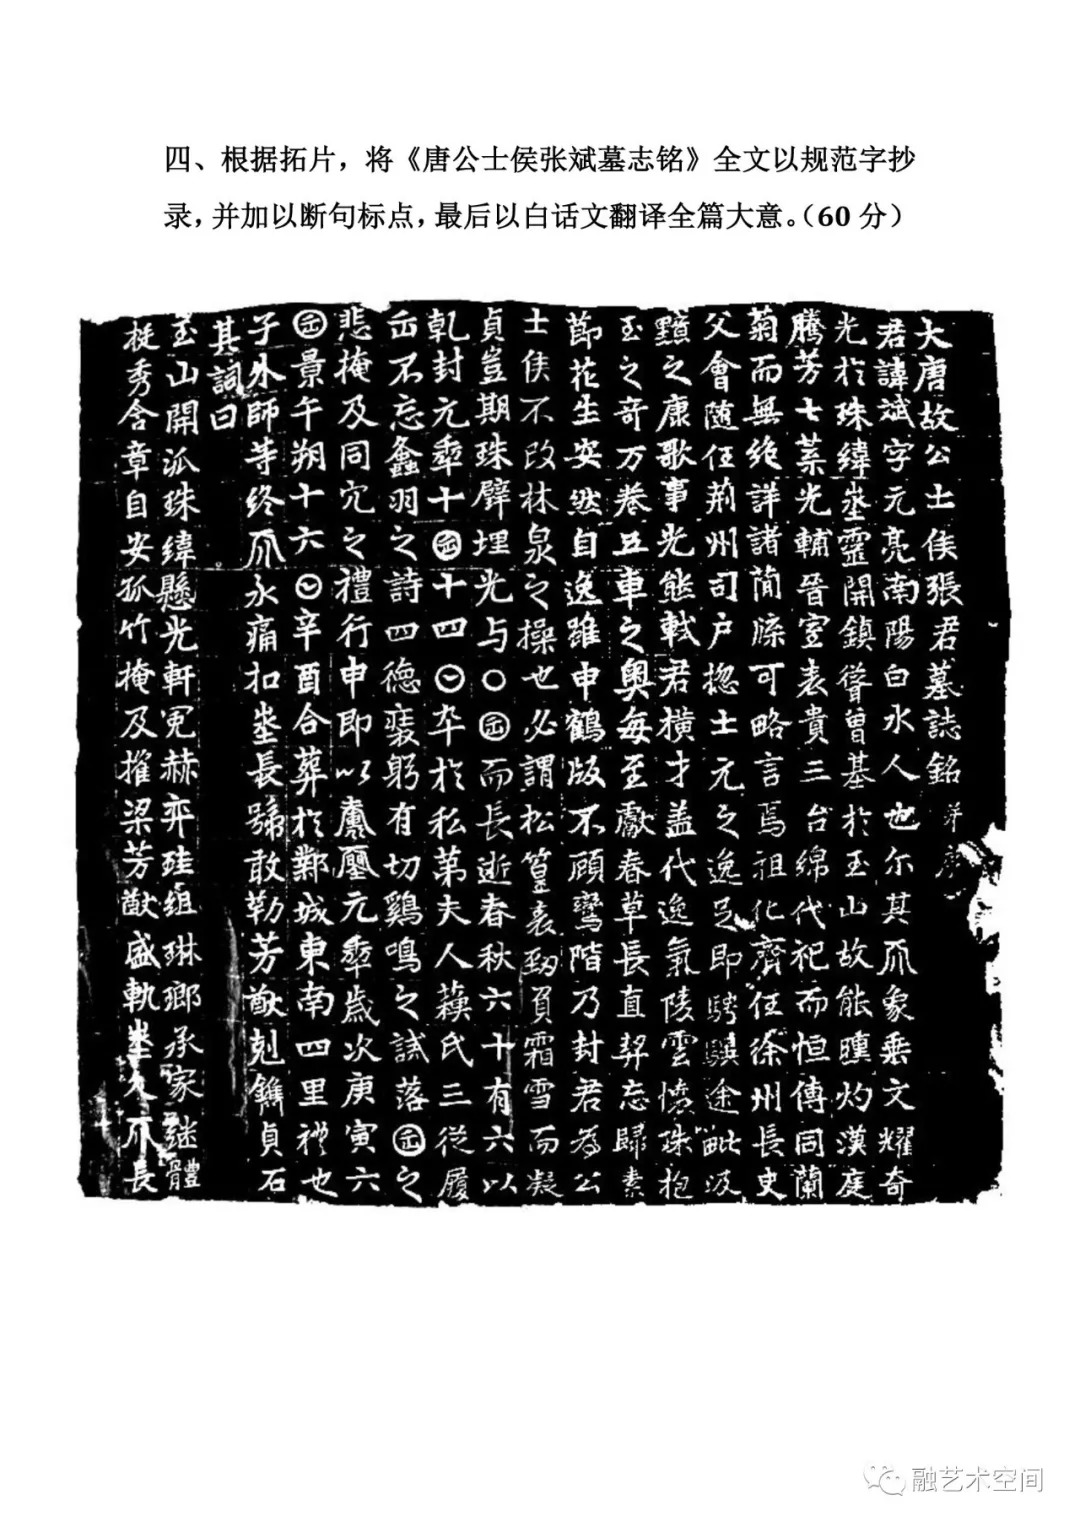 四、根据拓片，将《唐公士侯张斌墓志铭》全文以规范字抄
录，并加以断句标点，最后以白话文翻译全篇大意。（60 分）
大唐故公士侯張君墓誌銘并序
君諱斌字元亮南陽白水人也尔其爪象乗文耀奇
光於珠緯埊靈開鎮聳曾基於玉山故能曛灼漢庭
騰芳七葉光輔晉室表貴三台綿代祀而恒傳同蘭
菊而無絶詳諸簡牒可略言焉祖化齊任徐州長史
父會隨任荊州司戶揔士元之逸足即騁驥途毗汲
黯之康歌事光熊軾君橫才盖代逸氣陵雲懷珠抱
玉之奇万卷五車之奧每至獻春草長直契忘歸素
節花生安然自逸雖申鶴版不顧鸞階乃封君為公
士侯不改林泉之操也必謂松篁表勁負霜雪而凝
貞豈期珠璧埋光与〇𠥱而長逝春秋六十有六以
乹封元𠡦十𠥱十四𡆠卒於私第夫人蘓氏三從履
𠥱不忘螽羽之詩四德裵躬有切鷄鳴之誡落𠥱之
悲掩及同穴之禮行申即以𢋡𠪚元𠡦歳次庚寅六
𠥱景午朔十六𡆠辛酉合葬於鄴城東南四里禮也
子外師等終爪永痛扣埊長號敢勒芳猷剋鐫貞石
其詞曰
玉山開派珠緯懸光軒冕赫弈珪組琳瑯承家継體
挺秀含章自安孤竹掩及摧梁芳猷盛軌埊久爪長
融艺术空间